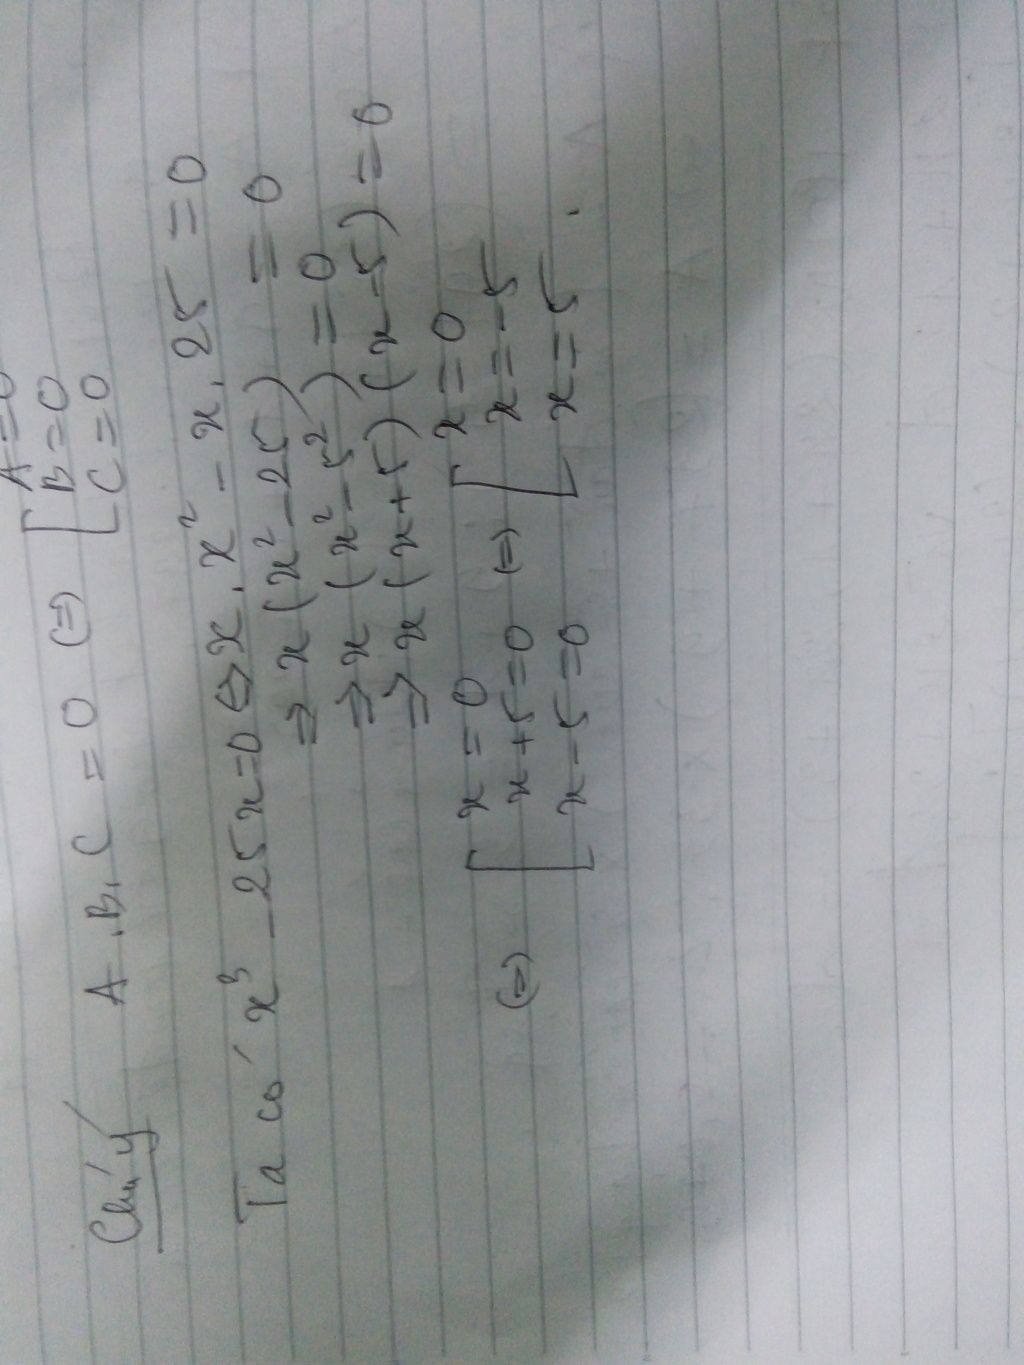 A=0
Chú ý A.B.C = 0 (=) [ B=0
C=0
Ta có x³ - 25x=0 <=> x.x² - x.25 = 0
=> x(x² - 25) = 0
=> x(x² - 5²) = 0
=> x(x+5)(x-5) = 0
(=) [ x = 0 (=) [ x = 0
x+5=0 x=-5
x-5=0 x=5.